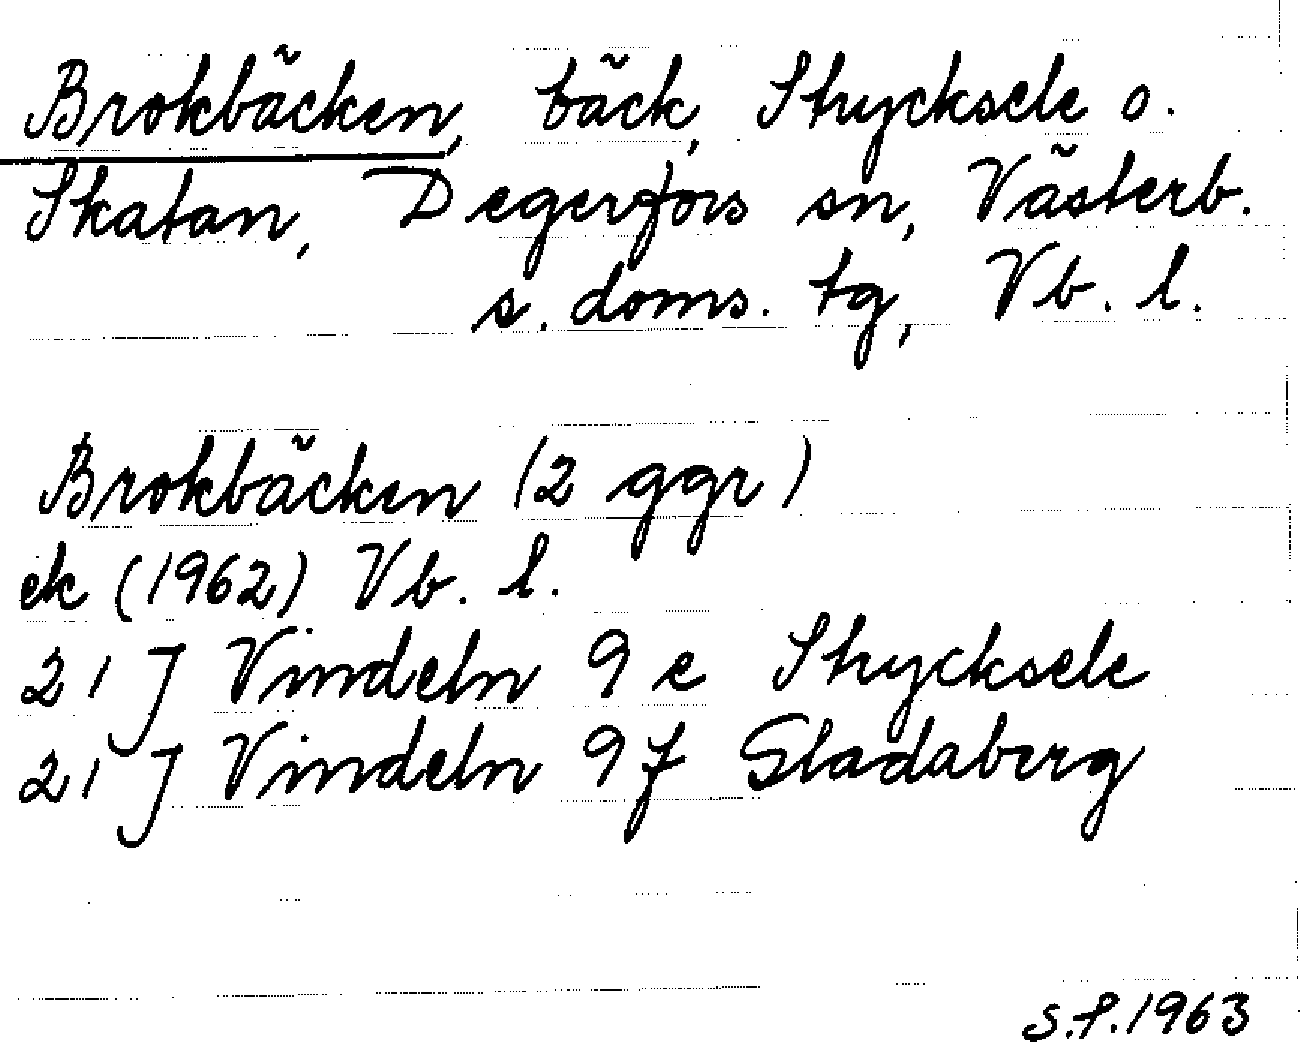 Brokbäcken, bäck, Strycksele o.
Skatan, Degerfors sn, Västerb.
s. doms. tg, Vb. l.
Brokbäcken (2 ggr)
ek (1962) Vb. l.
21 J Vindeln 9 e Strycksele
21 J Vindeln 9 f Gladaberg
S.P. 1963